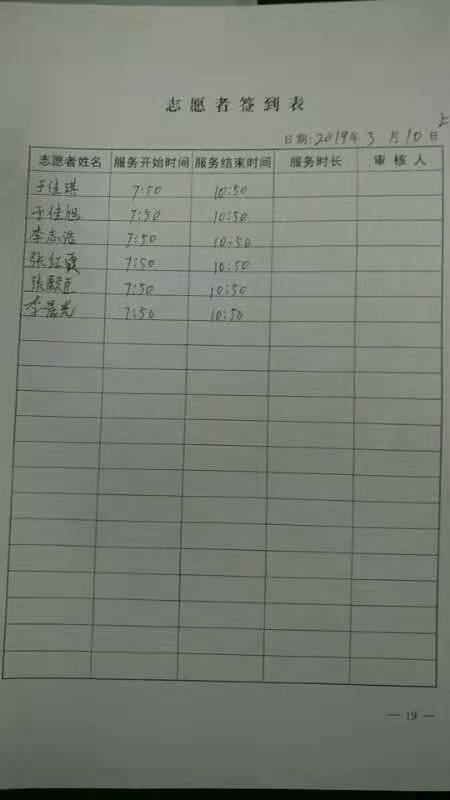 志愿者签到表
上
日期:2019年3月10日
志愿者姓名 服务开始时间 服务结束时间 服务时长 审核人
于佳琪 7:50 10:50
于佳旭 7:50 10:50
李志浩 7:50 10:50
张红霞 7:50 10:50
张殿臣 7:50 10:50
李晨光 7:50 10:50
— 19 —